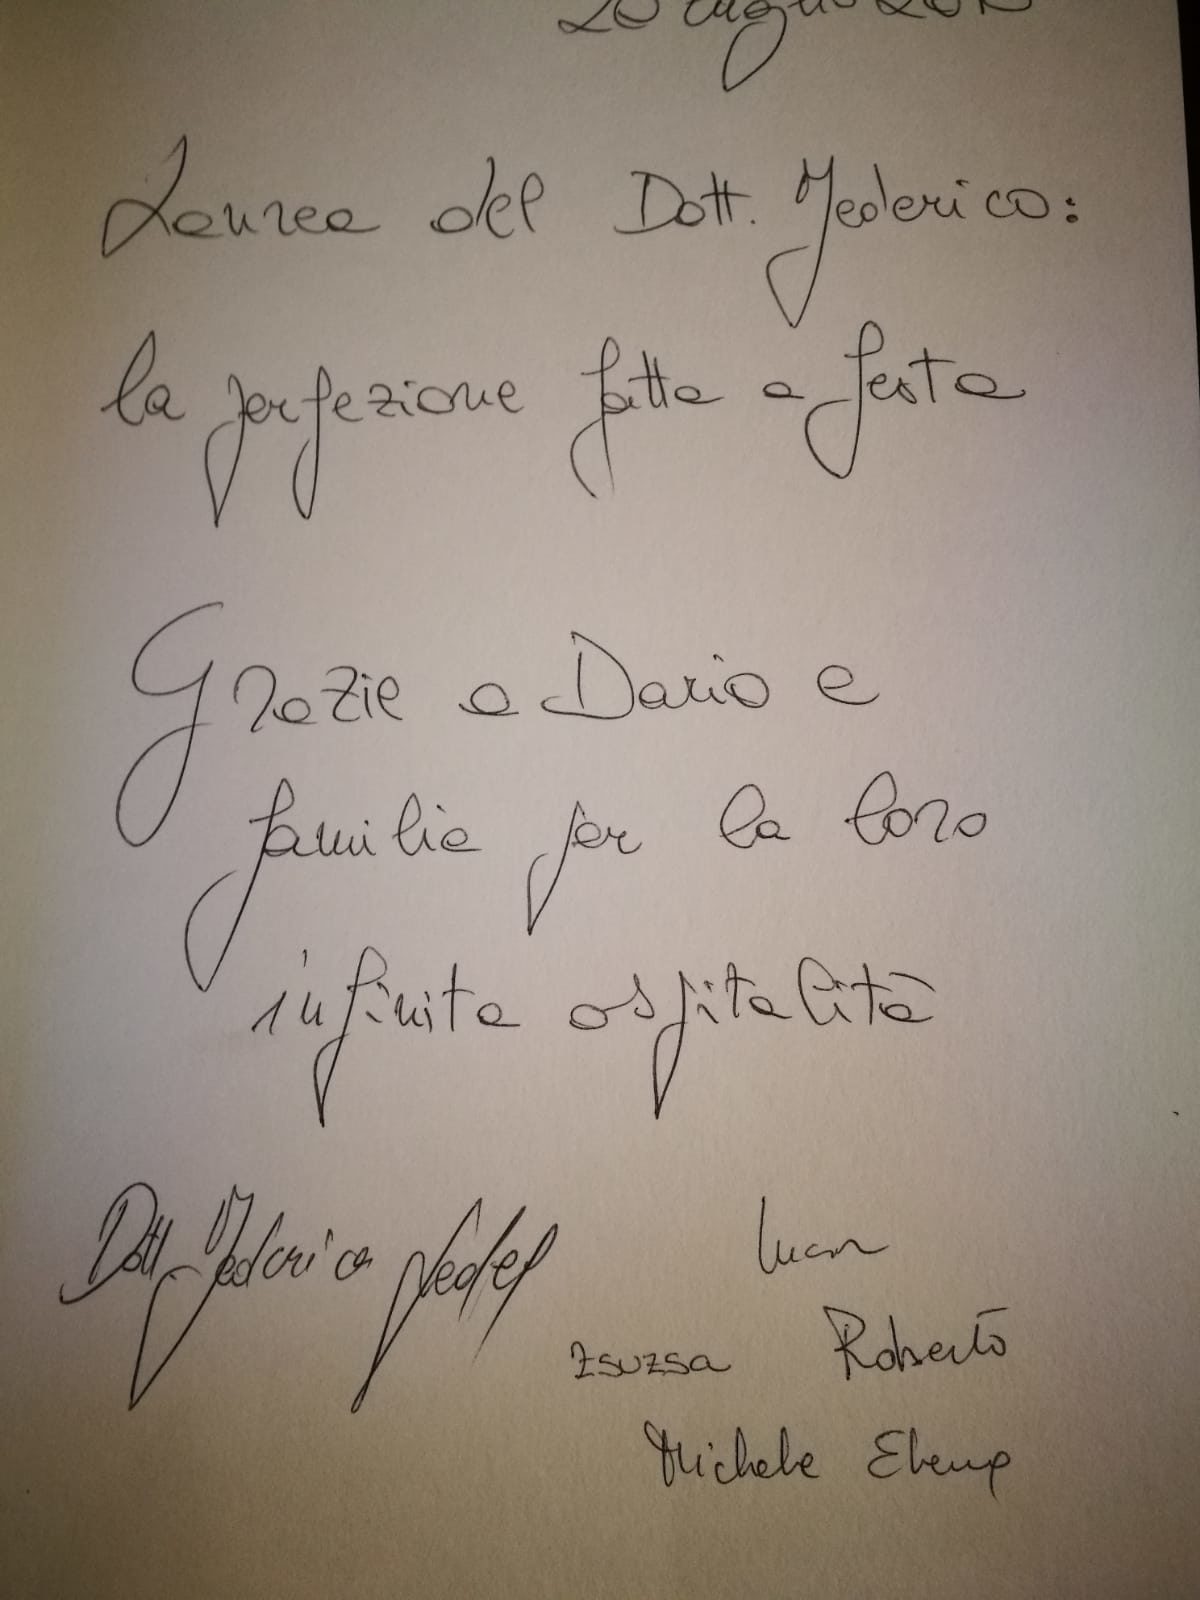 20 luglio
Laurea del Dott. Federico:
la perfezione fatta a festa
Grazie a Dario e
familia per la loro
infinita ospitalità
Dott. Federico
Zsuzsa Roberto
Michele